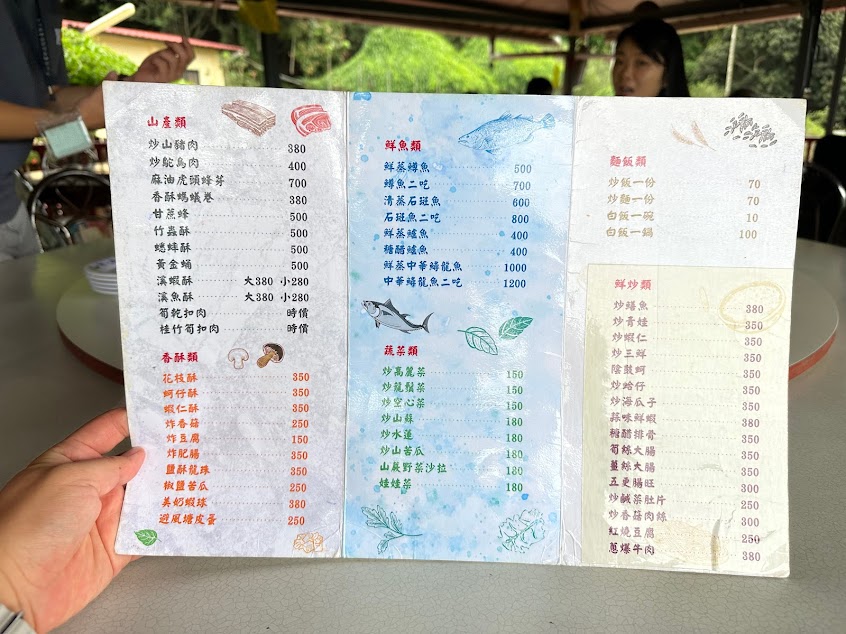 山產類
炒山豬肉 380
炒鴕鳥肉 400
麻油虎頭蜂芽 700
香酥螞蟻卷 380
甘蔗蜂 500
竹蟲酥 500
蟋蟀酥 500
黃金蛹 500
溪蝦酥 大380 小280
溪魚酥 大380 小280
筍乾扣肉 時價
桂竹筍扣肉 時價
香酥類
花枝酥 350
蚵仔酥 350
蝦仁酥 350
炸香菇 250
炸豆腐 150
炸肥腸 350
鹽酥龍珠 350
椒鹽苦瓜 250
美奶蝦球 380
避風塘皮蛋 250
鮮魚類
鮮蒸鱒魚 500
鱒魚二吃 700
清蒸石斑魚 600
石斑魚二吃 800
鮮蒸鱸魚 400
糖醋鱸魚 400
鮮蒸中華鱘龍魚 1000
中華鱘龍魚二吃 1200
蔬菜類
炒高麗菜 150
炒龍鬚菜 150
炒空心菜 150
炒山蘇 180
炒水蓮 180
炒山苦瓜 180
山蕨野菜沙拉 180
娃娃菜 180
麵飯類
炒飯一份 70
炒麵一份 70
白飯一碗 10
白飯一鍋 100
鮮炒類
炒鱔魚 380
炒青蛙 350
炒蝦仁 350
炒三鮮 350
陰鼓蚵 350
炒蛤仔 350
炒海瓜子 350
蒜味鮮蝦 380
糖醋排骨 350
筍絲大腸 350
薑絲大腸 350
五更腸旺 300
炒鹹菜肚片 250
炒香菇肉絲 300
紅燒豆腐 250
蔥爆牛肉 380